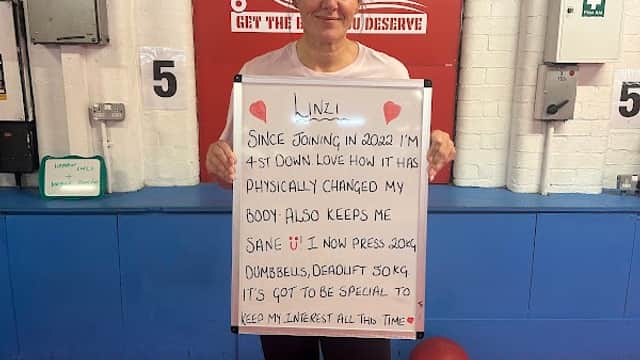 GET THE B YOU DESERVE
First Aid
5
5
5
LINZI
SINCE JOINING IN 2022 I'M
4ST DOWN LOVE HOW IT HAS
PHYSICALLY CHANGED MY
BODY. ALSO KEEPS ME
SANE ! I NOW PRESS 20KG
DUMBBELLS, DEADLIFT 50KG
IT'S GOT TO BE SPECIAL TO
KEEP MY INTEREST ALL THIS TIME